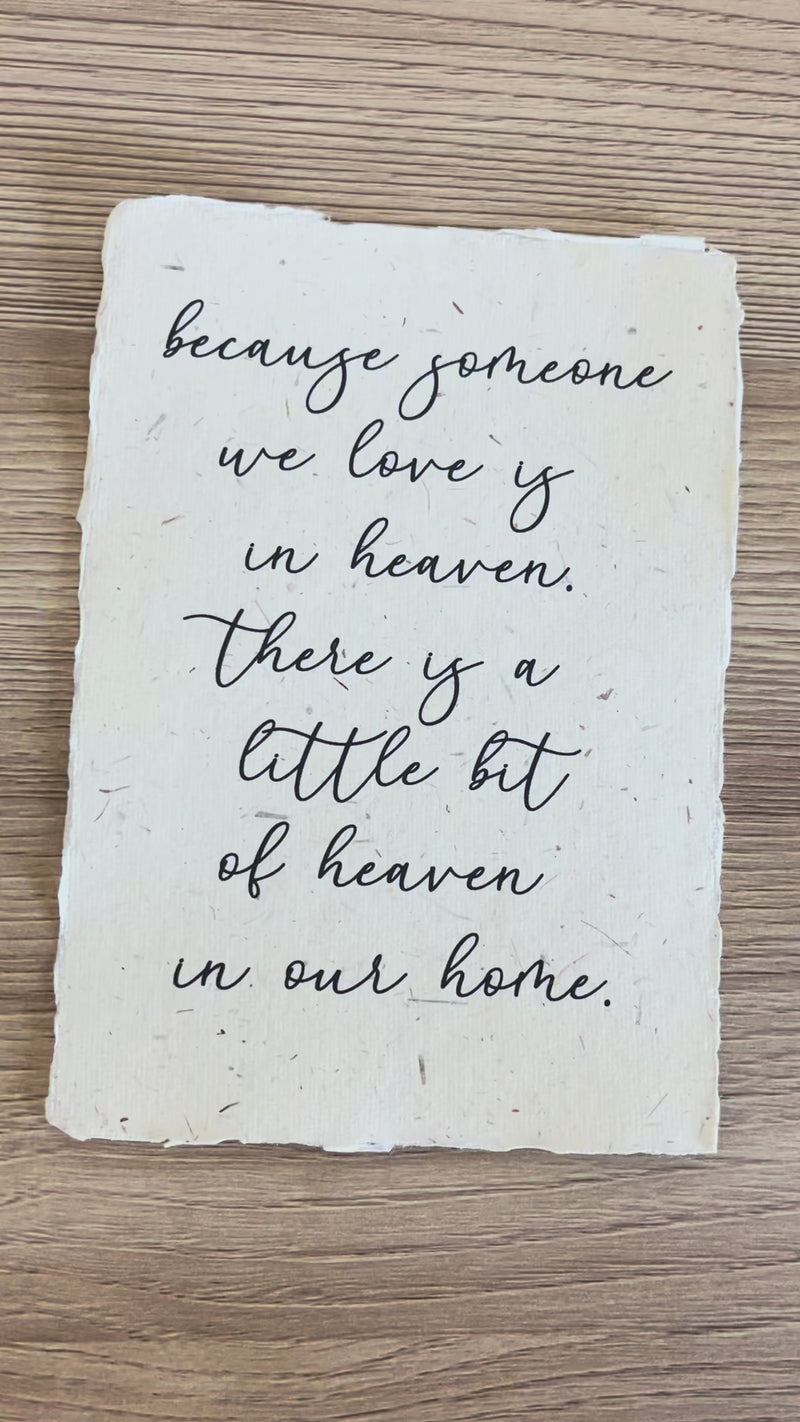 because someone
we love is
in heaven.
there is a
little bit
of heaven
in our home.